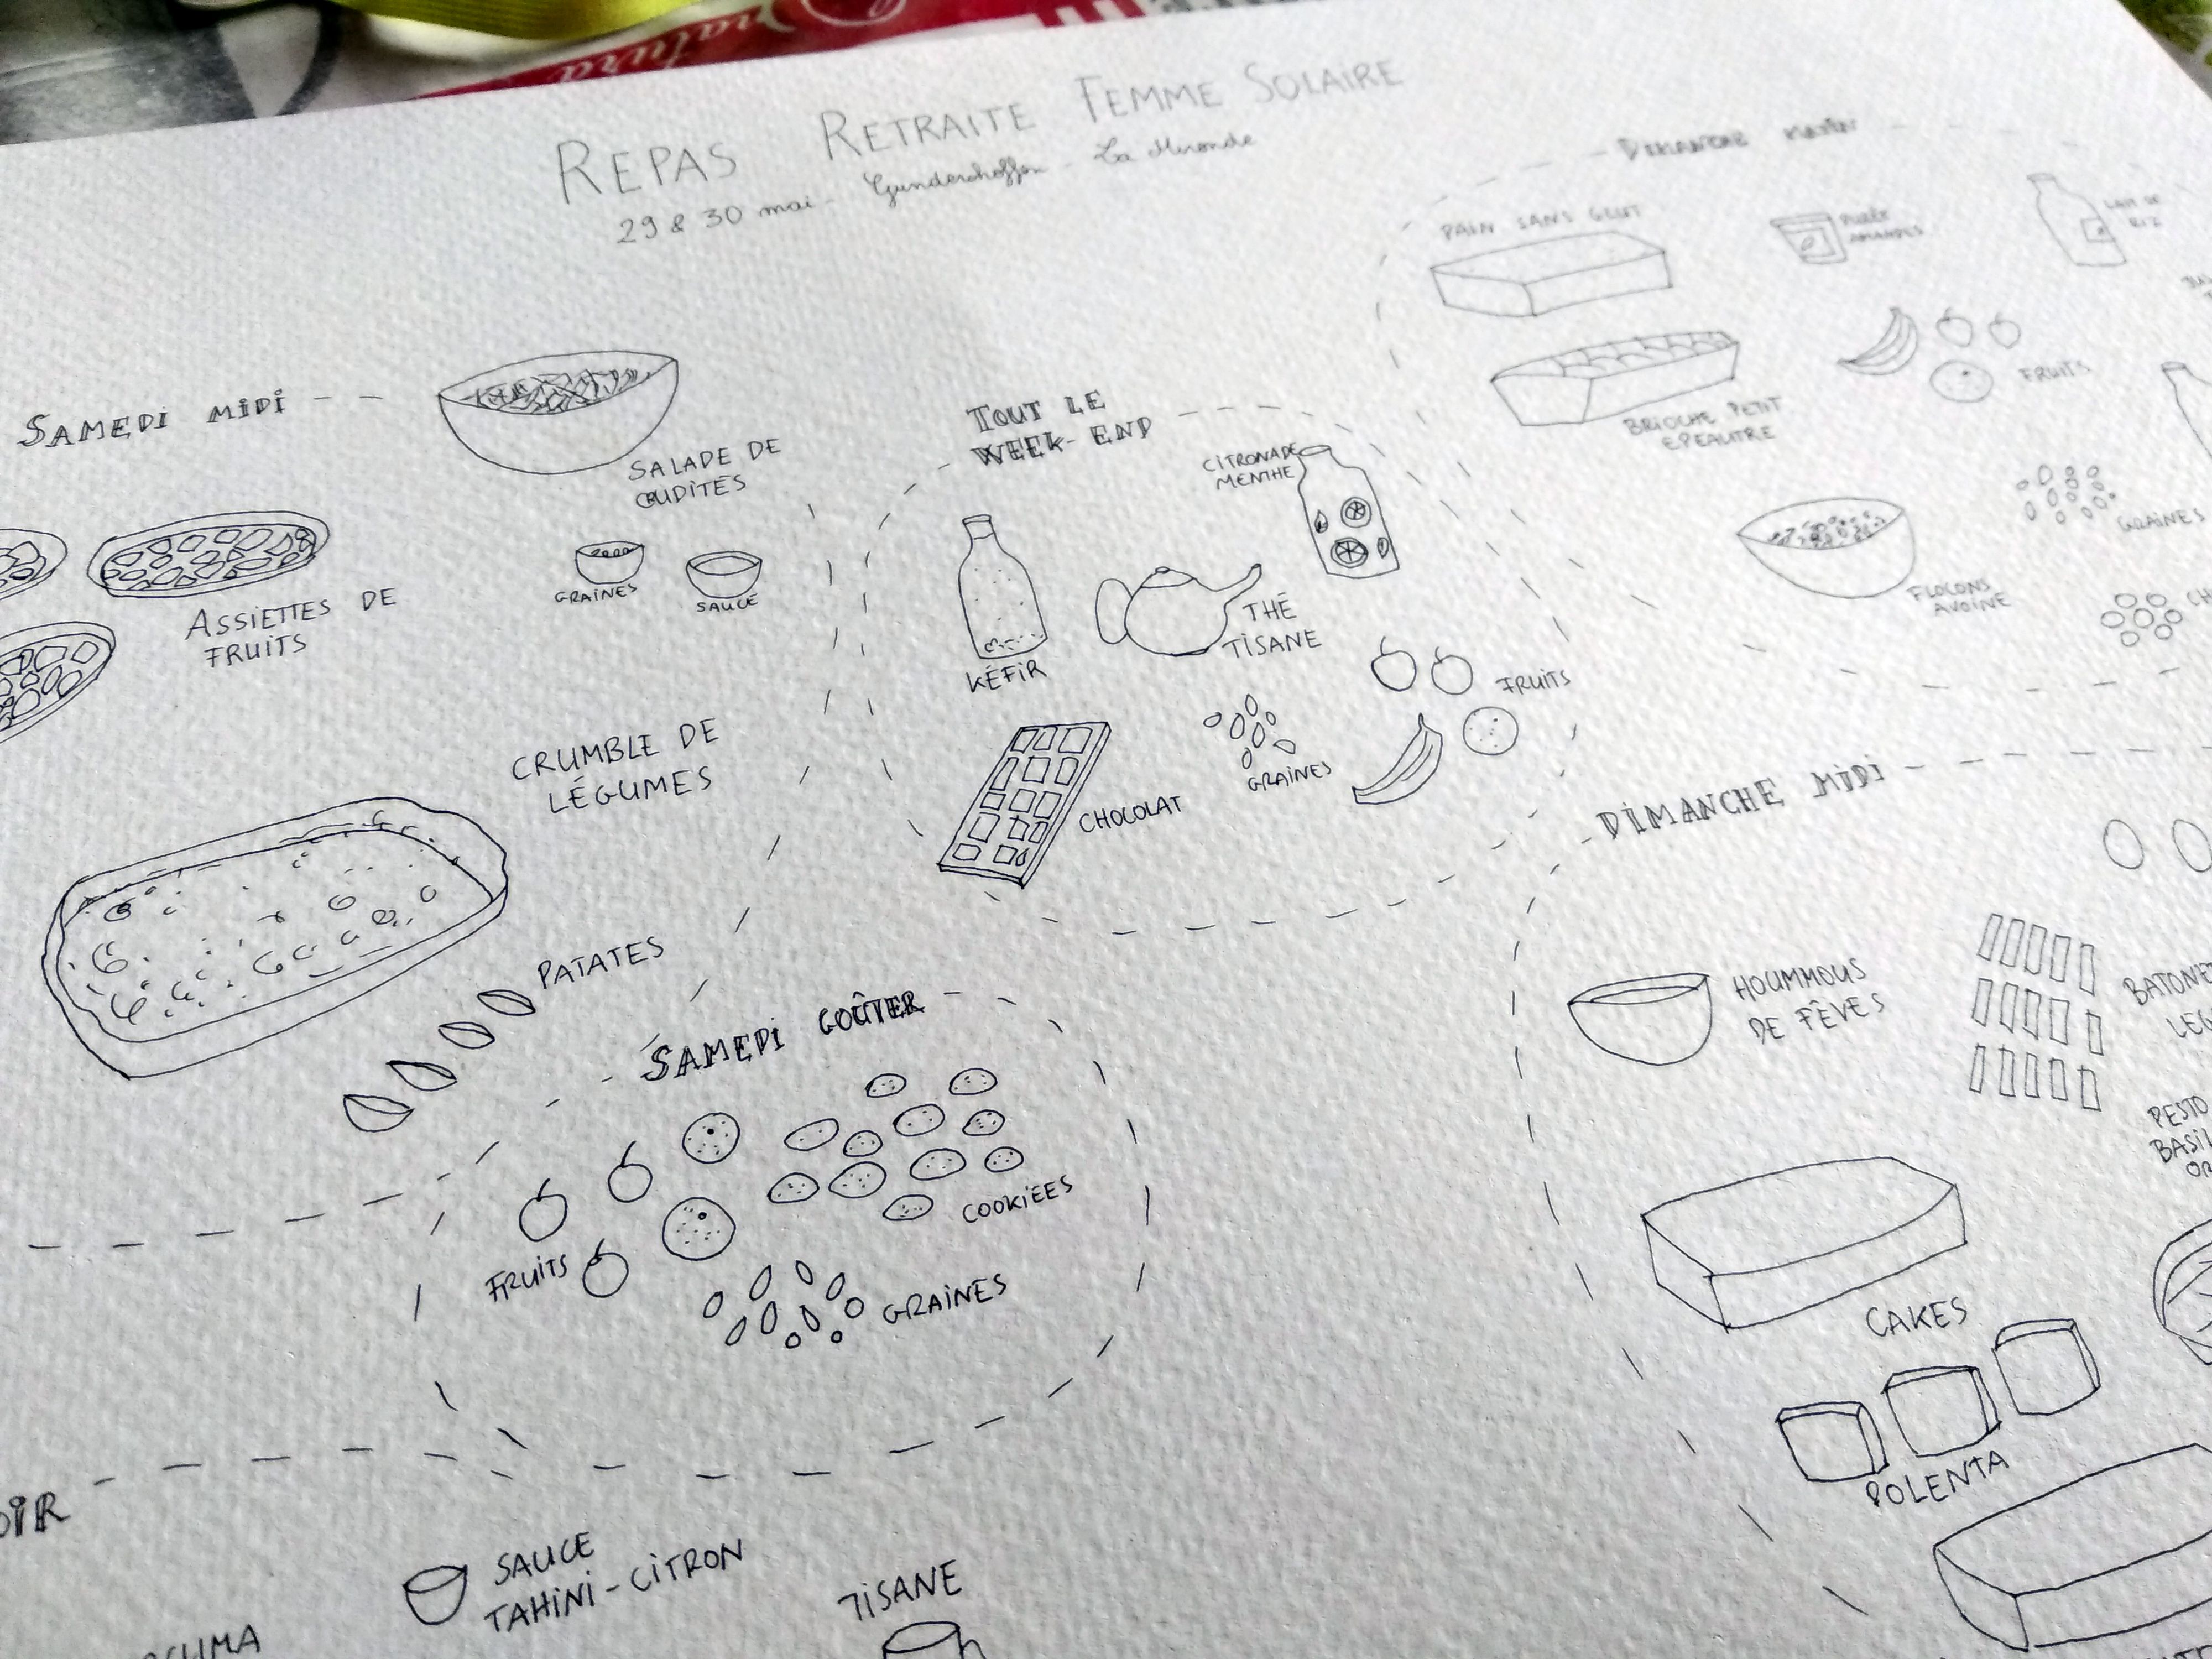 Natura
REPAS RETRAITE FEMME SOLAIRE
29 & 30 mai - Gundershoffen - La Mironde
SAMEDI MIDI
SALADE DE
CRUDITÉS
GRAINES
SAUCE
ASSIETTES DE
FRUITS
CRUMBLE DE
LÉGUMES
PATATES
TOUT LE
WEEK-END
CITRONADE
MENTHE
KÉFIR
THÉ
TISANE
FRUITS
GRAINES
CHOCOLAT
DIMANCHE MATIN
PAIN SANS GLUT
PURÉE
AMANDES
LAIT DE
RIZ
FRUITS
BRIOCHE PETIT
EPEAUTRE
GRAINES
FLOCONS
AVOINE
CH
SAMEDI GOÛTER
FRUITS
COOKIÉES
GRAINES
DIMANCHE MIDI
HOUMMOUS
DE FÈVES
BATONE
LEG
PESTO
BASIL
OR
CAKES
POLENTA
OIR
SAUCE
TAHINI-CITRON
TISANE